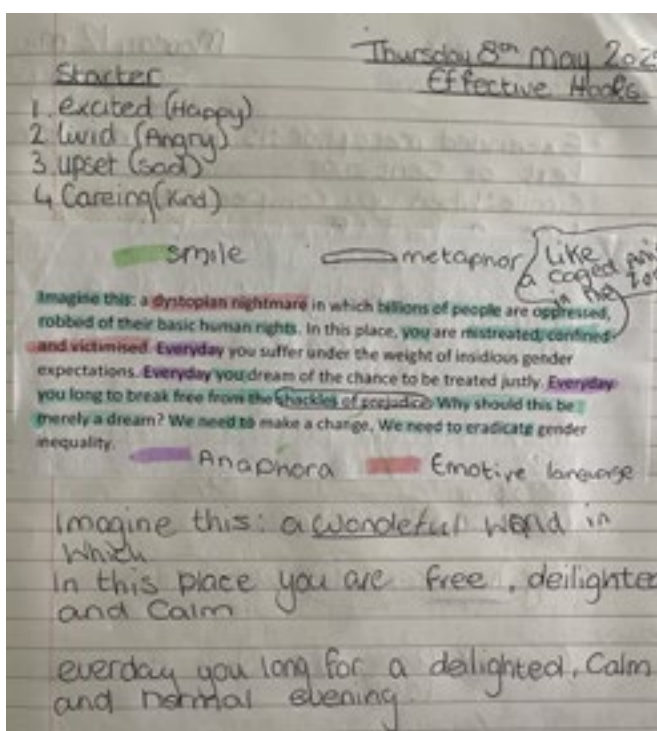 Thursday 8th May 202
Effective Hooks
Starter
1. excited (Happy)
2 Livid (Angry)
3. upset (sad)
4 Careing (Kind)
smile
metaphor
Like
a caged
in the
Imagine this: a dystopian nightmare in which billions of people are oppressed,
robbed of their basic human rights. In this place, you are mistreated, confined
and victimised. Everyday you suffer under the weight of insidious gender
expectations. Everyday you dream of the chance to be treated justly. Everyday
you long to break free from the shackles of prejudice. Why should this be
merely a dream? We need to make a change, We need to eradicate gender
inequality.
Anaphora
Emotive language
Imagine this: a wondeful world in
which
In this place you are free, deilighted
and Calm
everday you long for a deilighted, Calm
and normal evening